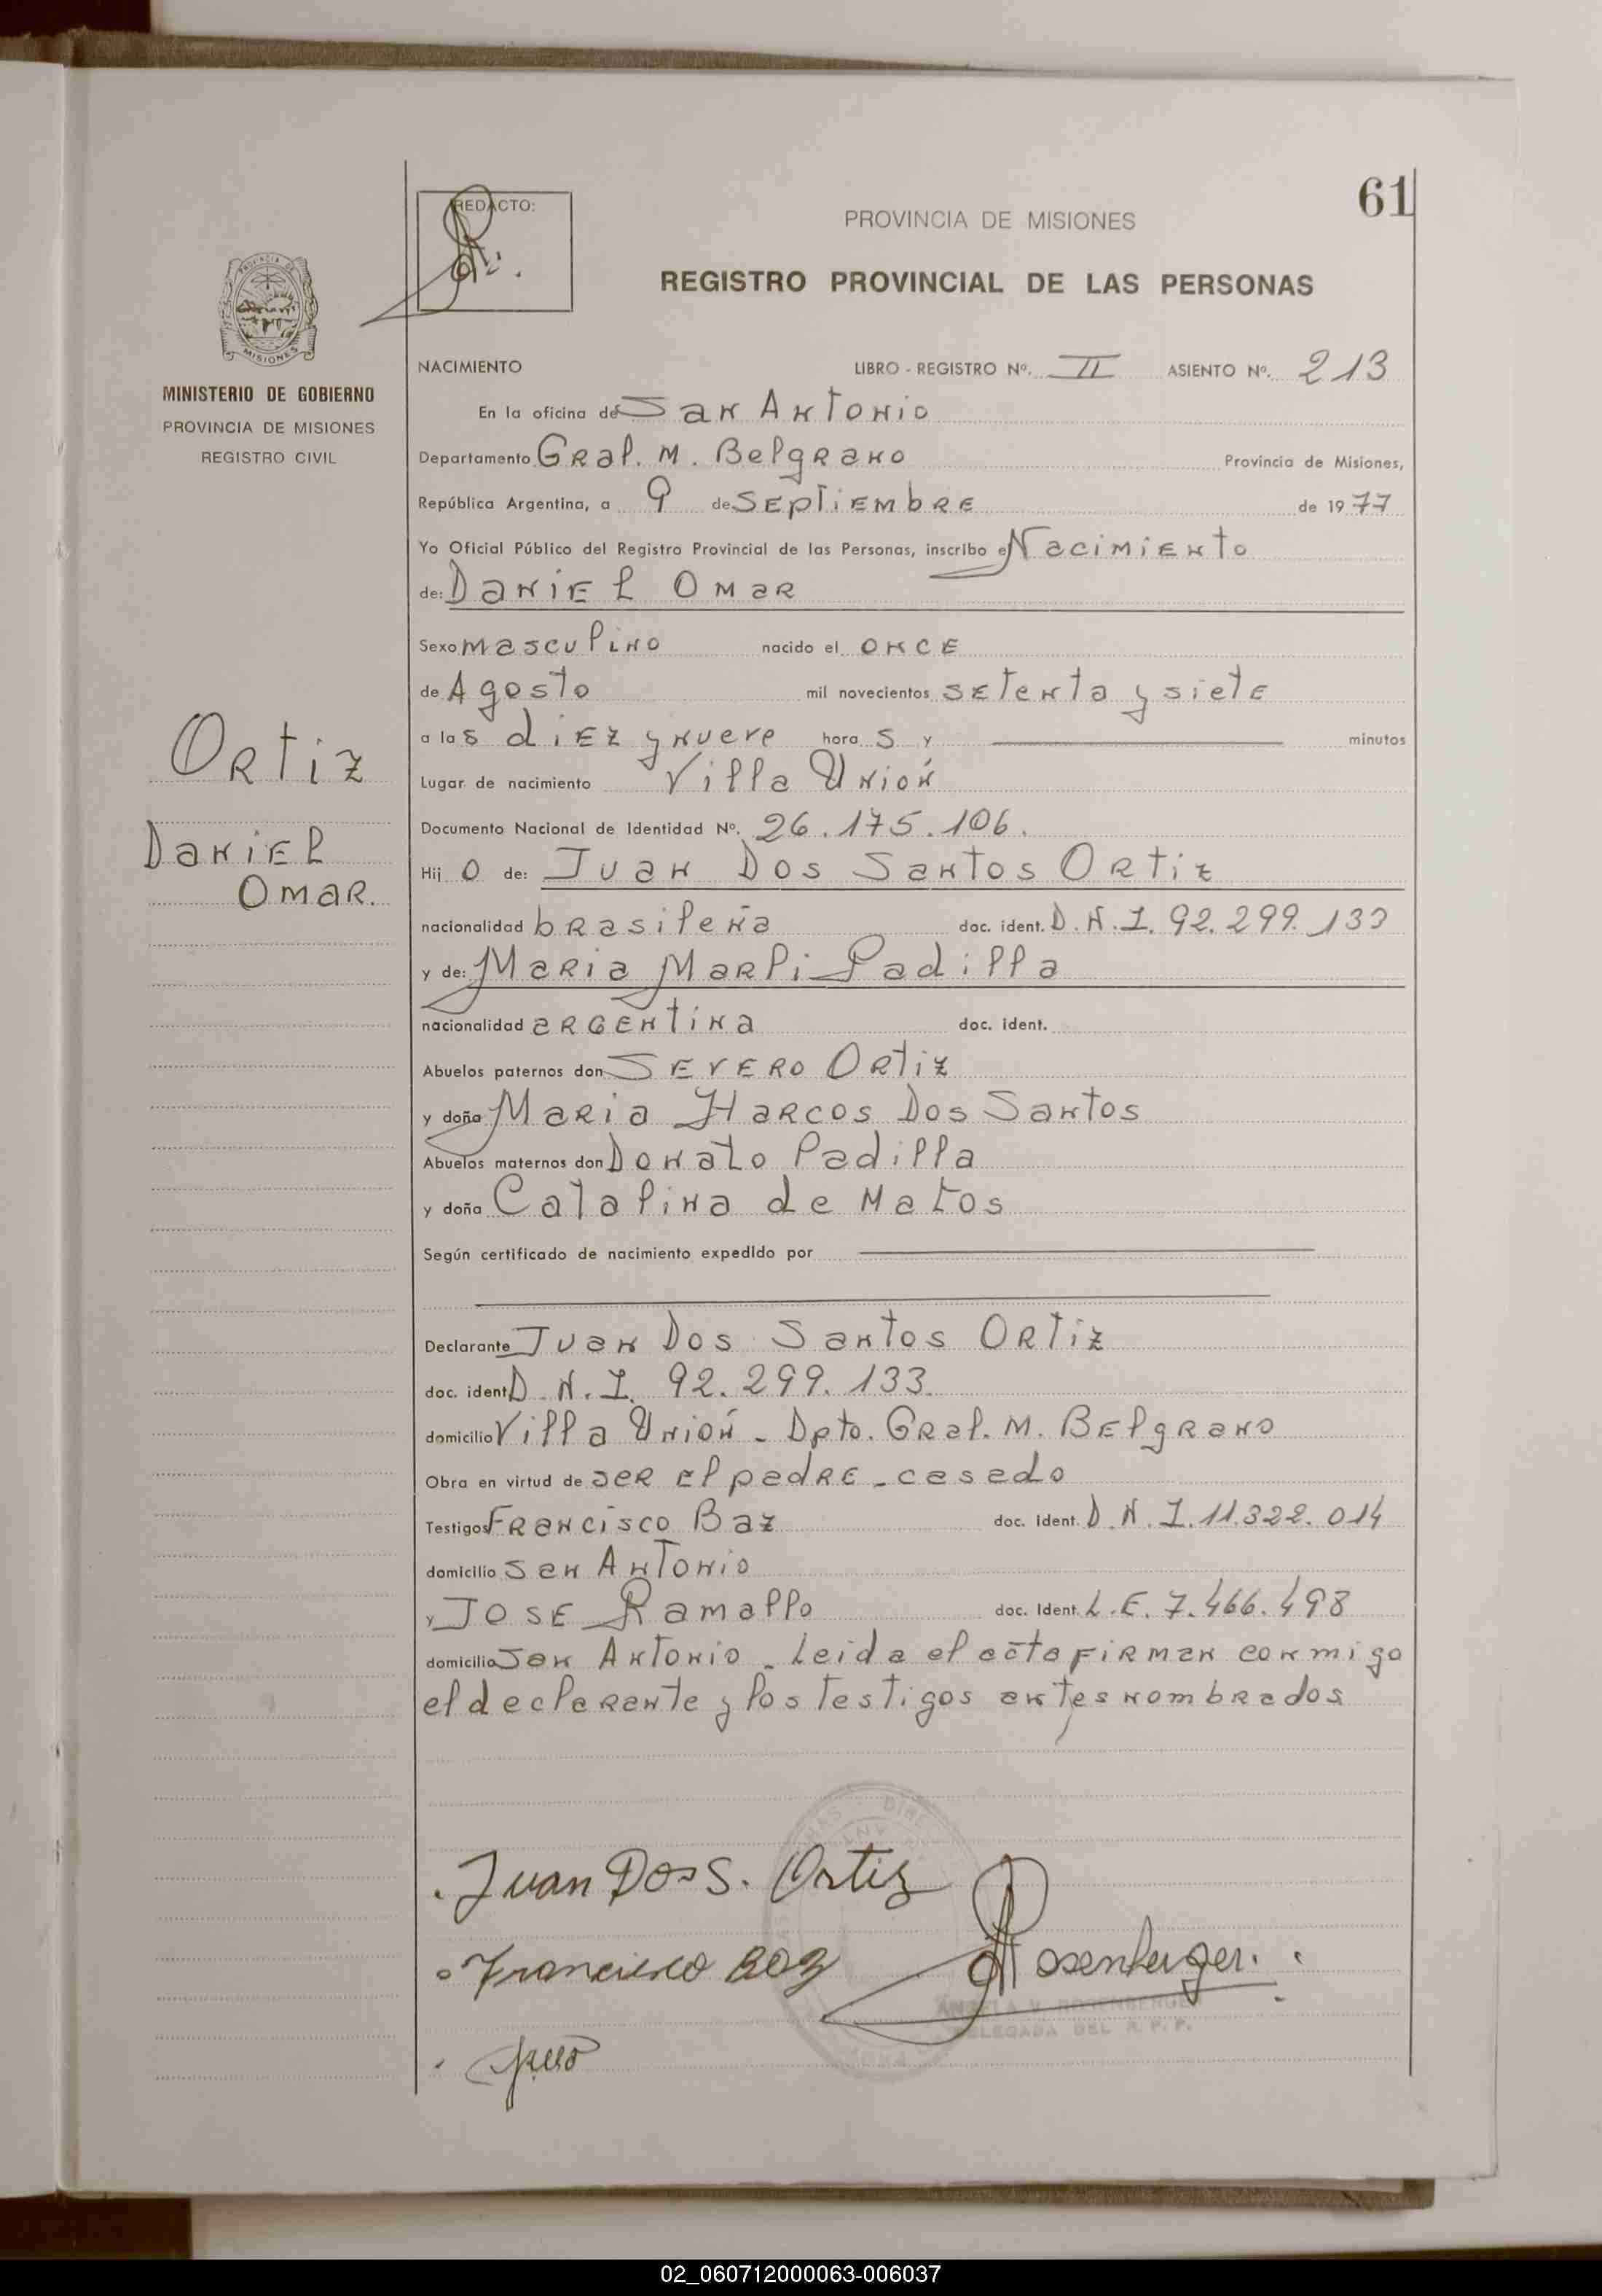 61
REDACTO:
PROVINCIA DE MISIONES
REGISTRO PROVINCIAL DE LAS PERSONAS
MISIONES
MINISTERIO DE GOBIERNO
PROVINCIA DE MISIONES
REGISTRO CIVIL
Ortiz
Daniel
Omar.
NACIMIENTO LIBRO - REGISTRO Nº. II ASIENTO Nº. 213
En la oficina de San Antonio
Departamento Gral. M. Belgrano Provincia de Misiones,
República Argentina, a 9 de Septiembre de 1977
Yo Oficial Público del Registro Provincial de las Personas, inscribo el Nacimiento
de: Daniel Omar
Sexo masculino nacido el once
de Agosto mil novecientos setenta y siete
a las diez y nueve horas y minutos
Lugar de nacimiento Villa Unión
Documento Nacional de Identidad Nº. 26.175.106.
Hijo de: Juan Dos Santos Ortiz
nacionalidad brasileña doc. ident. D.N.I. 92.299.133
y de: Maria Marli Padilla
nacionalidad argentina doc. ident.
Abuelos paternos don Severo Ortiz
y doña Maria Harcos Dos Santos
Abuelos maternos don Donato Padilla
y doña Catalina de Matos
Según certificado de nacimiento expedido por
Declarante Juan Dos Santos Ortiz
doc. ident D.N.I. 92.299.133.
domicilio Villa Unión - Dpto. Gral. M. Belgrano
Obra en virtud de ser el padre - casado
Testigos Francisco Baz doc. Ident. D.N.I. 11.322.014
domicilio San Antonio
y Jose Ramallo doc. Ident. L.E. 7.466.498
domicilio San Antonio - Leida el acta firman conmigo
el declarante y los testigos antes nombrados
Juan Dos S. Ortiz
Francisco Boz
Rosenberger.
ANGELA V. ROSENBERGER
DELEGADA DEL R. P. P.
02_060712000063-006037